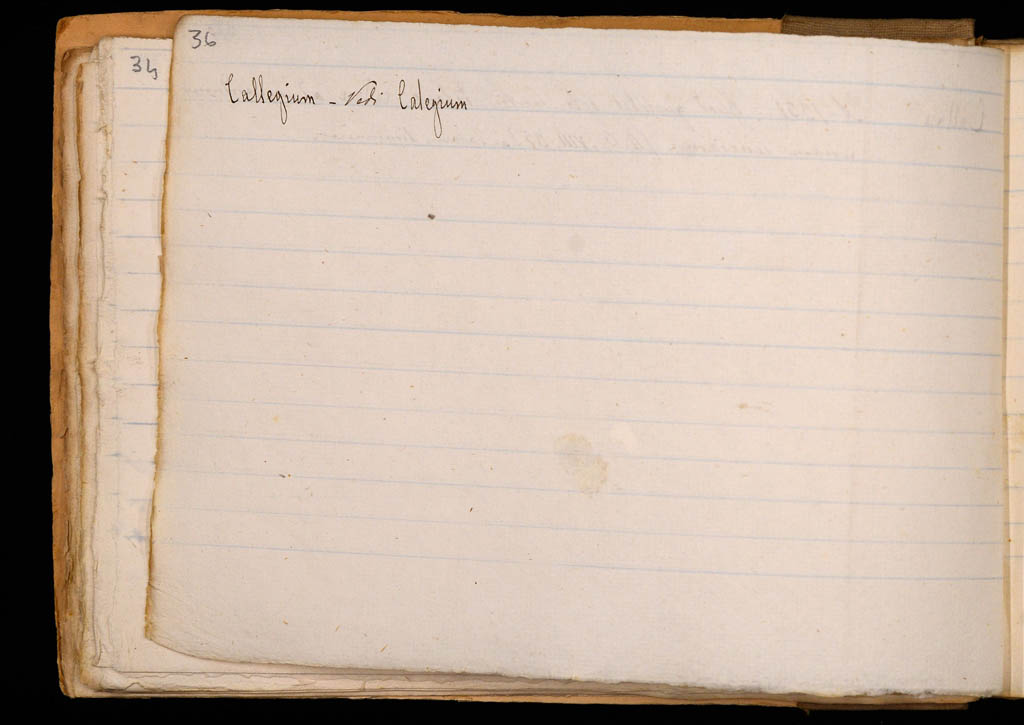 36
34
Callegium - Vedi Calegium